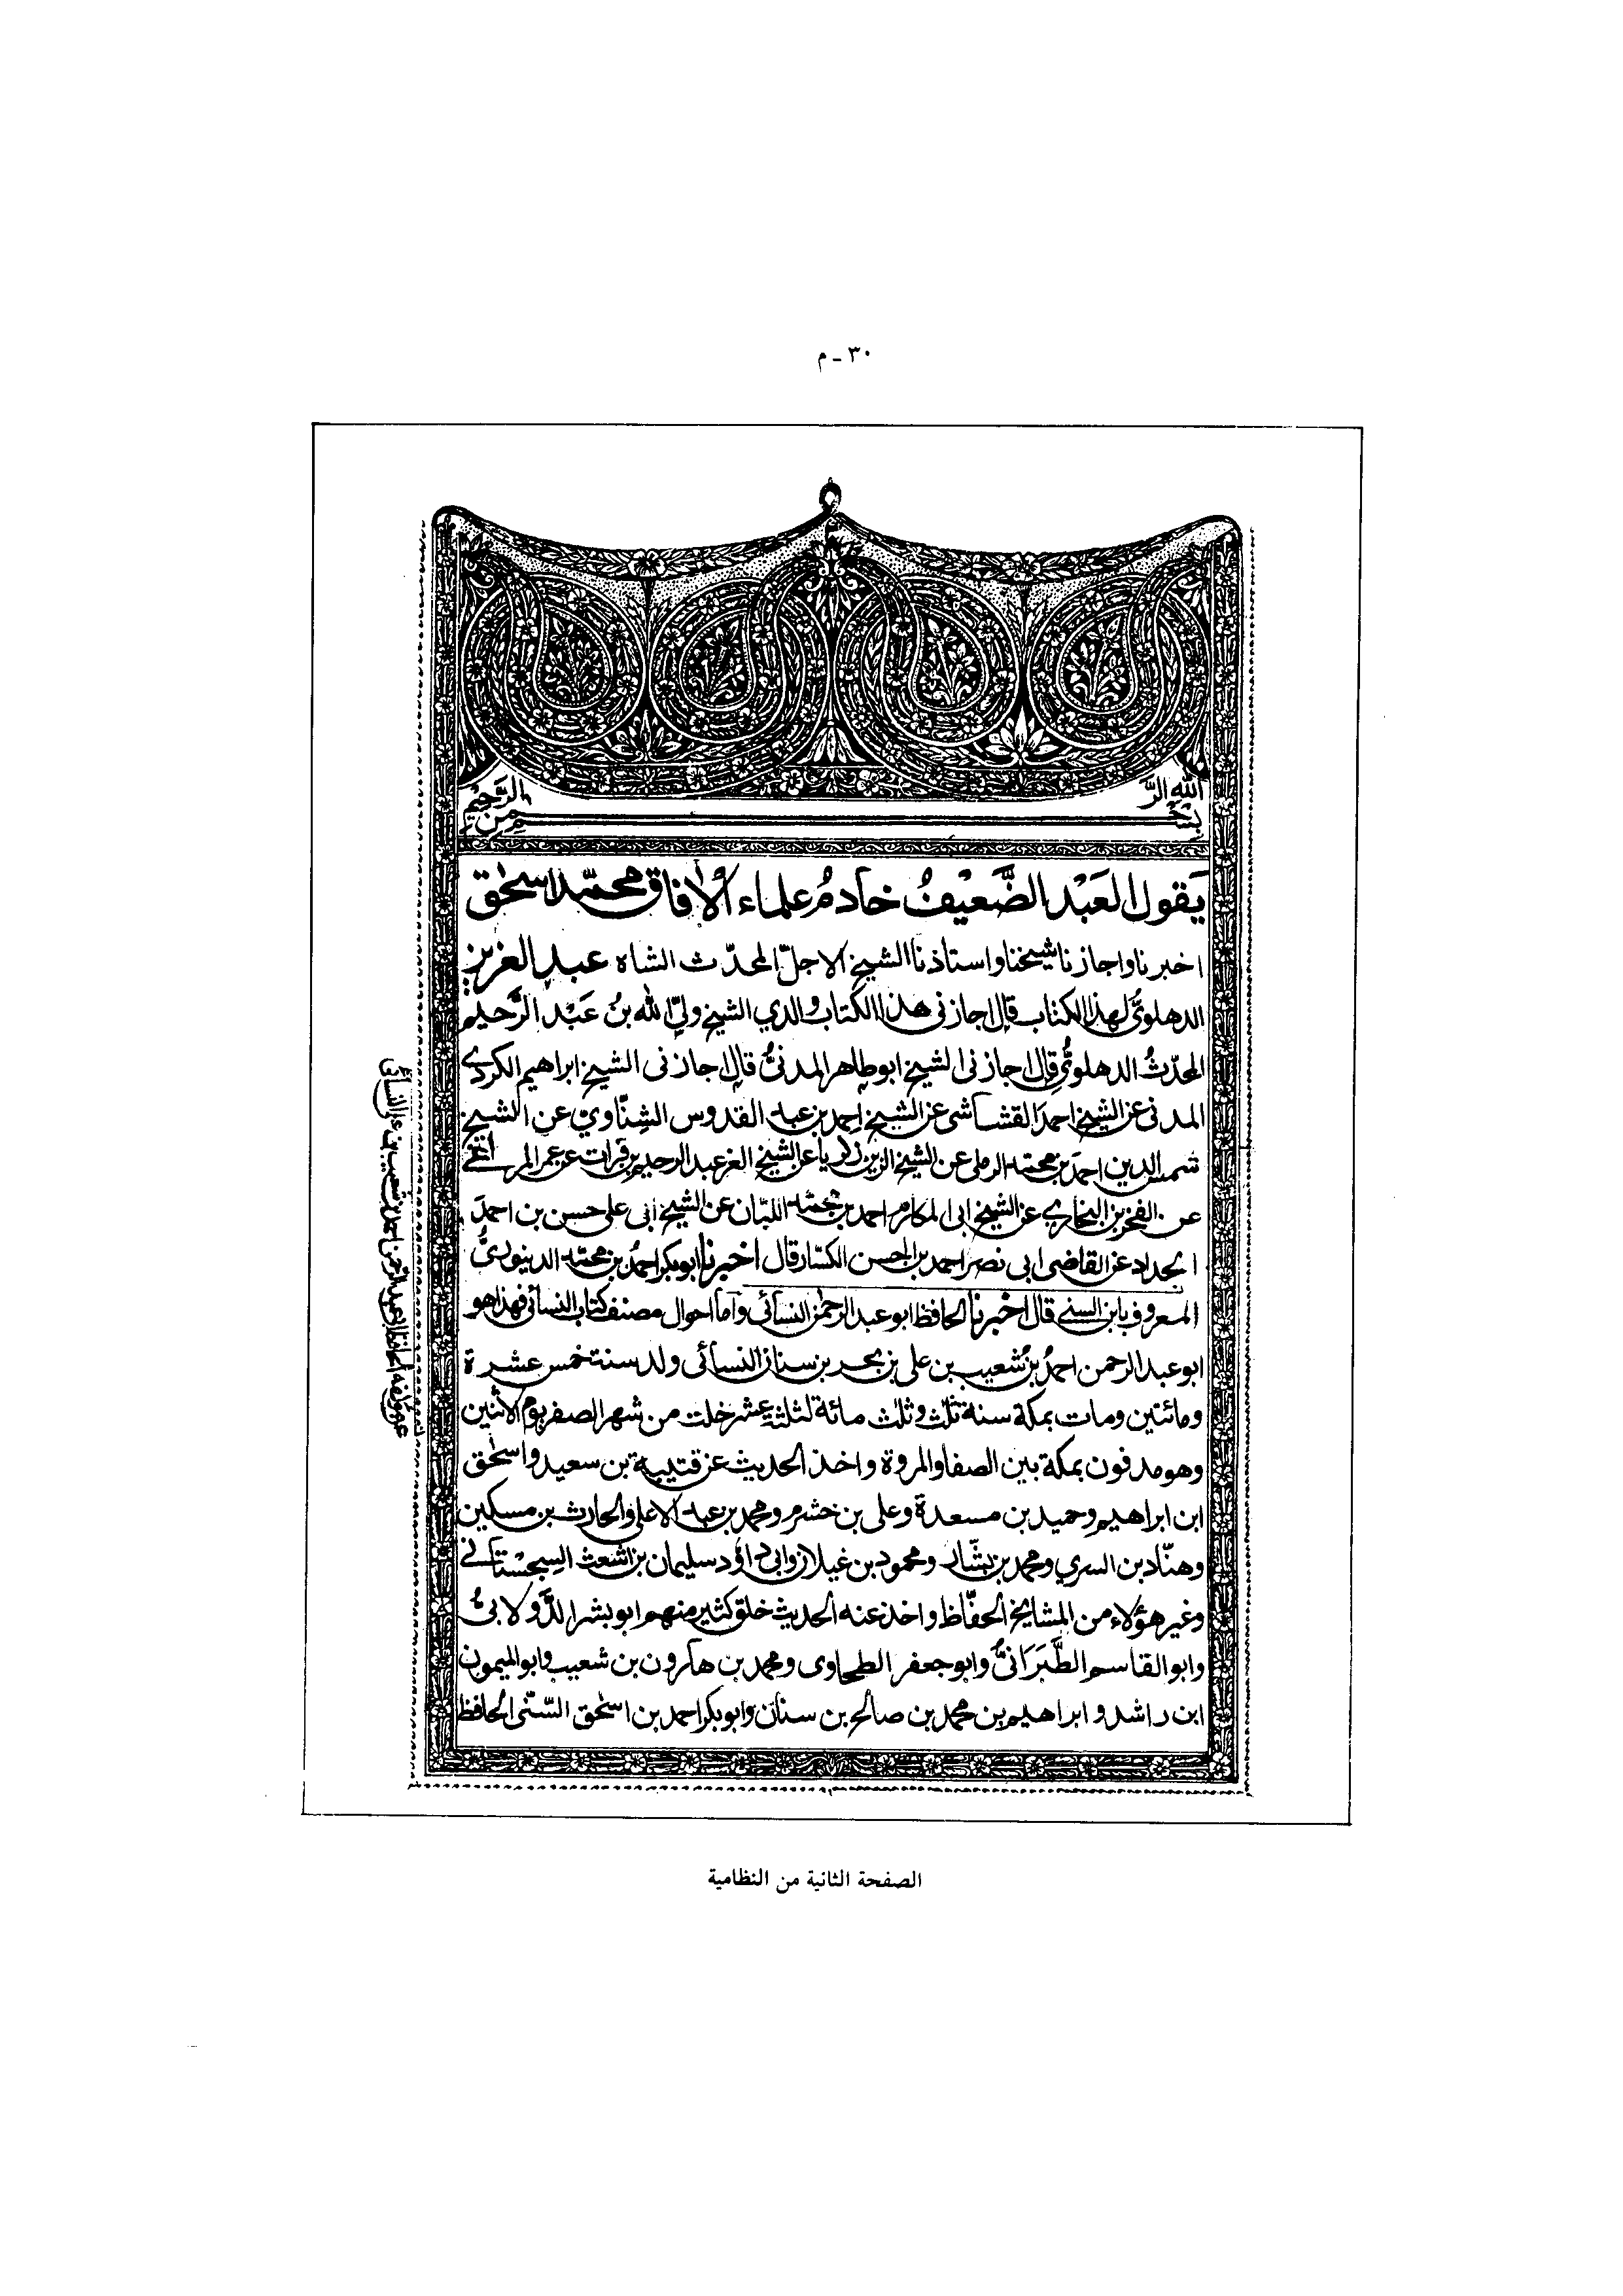 ٣٠ - م
بسم الله الرحمن الرحيم
يَقول العَبْد الضَّعِيْفُ خادمُ علماء الاٰفاق محمّد اسحٰق
اخبرنا واجازنا شيخنا واستاذنا الشيخ الاجلّ المحدّث الشاه عبد العزيز
الدهلوىُّ لهذا الكتاب قال اجازنى هذا الكتاب والدي الشيخ ولىّ الله بنُ عَبْد الرَّحيم
المحدّثُ الدهلوىُّ قال اجازنى الشيخ ابو طاهر المدنىُّ قال اجازنى الشيخ ابراهيم الكردے
المدنى عن الشيخ احمدَ القشاشى عن الشيخ احمد بن عبد القدوس الشنّاوي عن الشيخ
شمس الدين احمدَ بن محمد الرملى عن الشيخ الزين زكريا عن الشيخ العز عبد الرحيم بن فرات عن عمر المراغى
عن الفخر بن البخاري عن الشيخ ابى المكارم احمد بن محمد اللبّان عن الشيخ ابى على حسن بن احمدَ
الحداد عن القاضى ابى نصر احمد بن الحسن الكسّار قال اخبرنا ابو بكر احمدُ بن محمد الدينوريُّ
المعروف بابن السنے قال اخبرنا الحافظ ابو عبد الرحمٰن النسائى واما احوال مصنف كتاب النسائى فهذا هو
ابو عبد الرحمن احمدُ بنُ شعيب بن على بن بحر بن سنان النسائى ولد سنة خمس عشرة
ومائتين ومات بمكة سنة ثلٰث وثلٰث مائة لثلثة عشر خلت من شهر الصفر يوم الاثنين
وهو مدفون بمكة بين الصفا والمروة واخذ الحديث عن قتيبة بن سعيد واسحٰق
ابن ابراهيم وحميد بن مسعدة وعلى بن خشرم ومحمد بن عبد الاعلى والحارث بن مسكين
وهنّاد بن السري ومحمد بن بشّار ومحمود بن غيلان وابى داؤد سليمان بن اشعث السجستانے
وغير هؤلاء من المشايخ الحفّاظ واخذ عنه الحديث خلق كثير منهم ابو بشر الدَّولابىُّ
وابو القاسم الطَّبَرَانىُّ وابو جعفر الطحاوى ومحمد بن هارون بن شعيب وابو الميمون
ابن راشد و ابراهيم بن محمد بن صالح بن سنان وابو بكر احمد بن اسحٰق السُّنّى الحافظ
عن مؤلفه الحافظ ابى عبد الرحمن احمد بن شعيب بن على النسائى
الصفحة الثانية من النظامية